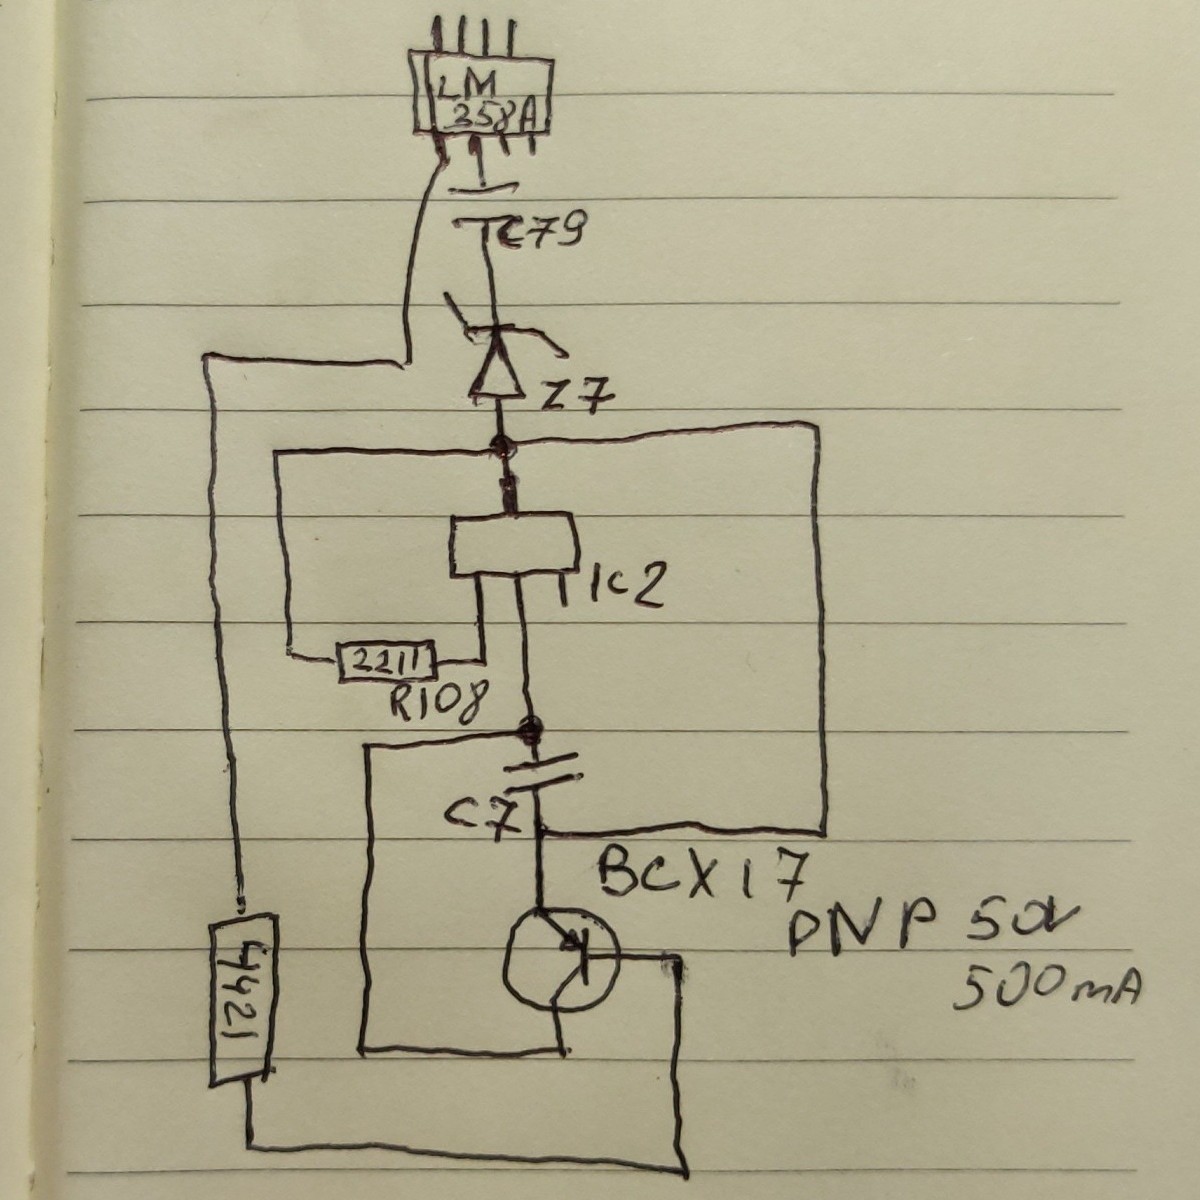 LM
358A
C79
Z7
IC2
2211
R108
C7
BCX17
PNP 50V
500mA
4421